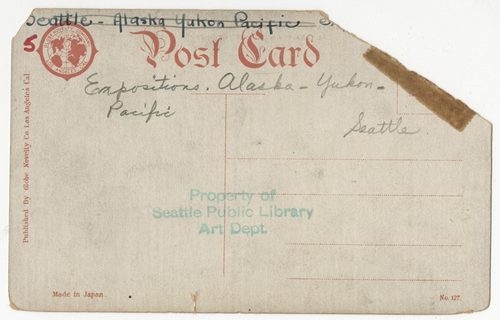 Seattle - Alaska Yukon Pacific
5
Post Card
Expositions. Alaska - Yukon -
Pacific
Seattle
Property of
Seattle Public Library
Art Dept.
Published By Globe Novelty Co. Los Angeles Cal.
Made in Japan.
No. 127.